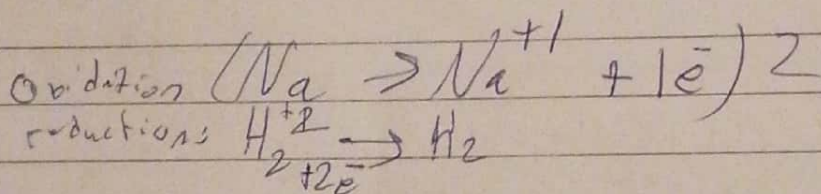 Oxidation (Na → Na⁺¹ + 1e⁻) 2
reduction: H₂⁺² +2e⁻ → H₂